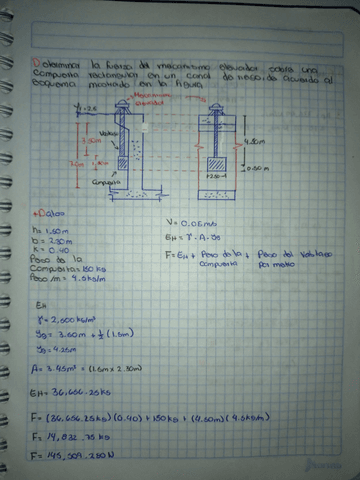 Determinar la fuerza del mecanismo elevador sobre una
compuerta rectangular en un canal de riego, de acuerdo al
esquema mostrado en la figura.
Mecanismo
elevador
3.50m
Vastago
Compuerta
4.50m
0.50m
* Datos
h = 1.50m
b = 2.30m
K = 0.40
Peso de la
Compuerta = 150 kg
Peso m = 4.5 kg/m
EH = γ · A · Yg
F = EH + Peso de la + Peso del Vastago
compuerta por metro
EH
Yg = 3.50m + ½ (1.5m)
Yg = 4.25m
A = 3.45m² = (1.5m x 2.30m)
EH = 36,656.25 kg
F = (36,656.25 kg)(0.40) + 150 kg + (4.50m)(4.5 kg/m)
F = 14,832.75 kg
F = 145,509.280 N